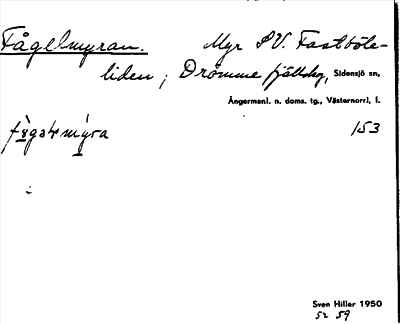 Fågelmyran. Myr SV. Fastböle-
liden, Drömme fjällskog, Sidensjö sn,
Ångermanl. n. doms. tg., Västernorrl. l.
153
Sven Hiller 1950
52 59